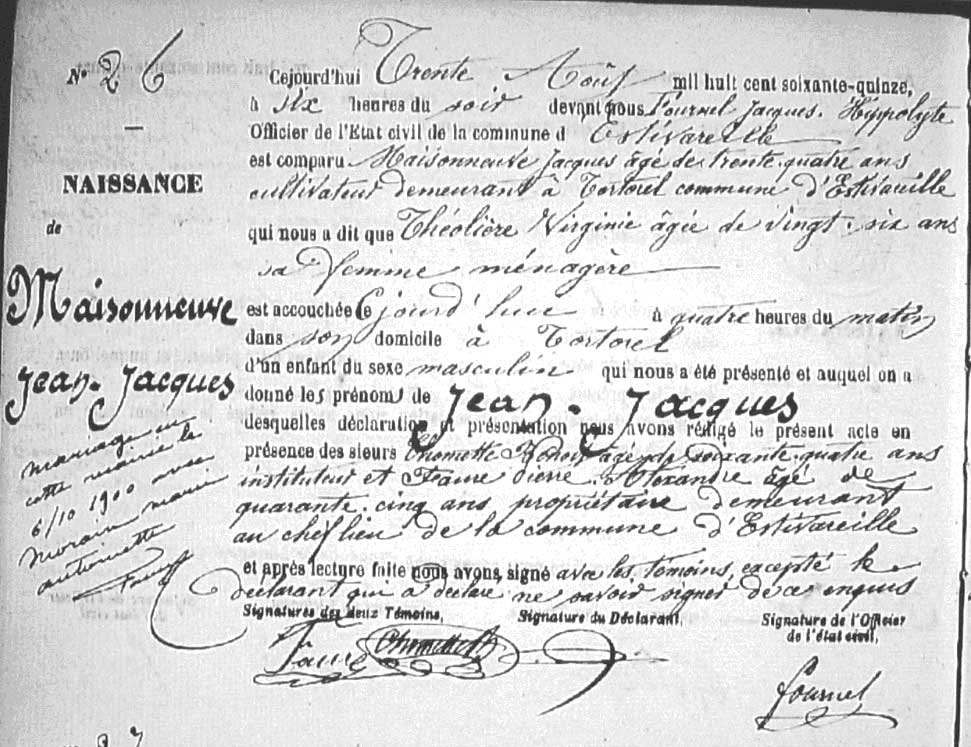 N° 26
NAISSANCE
de
Maisonneuve
Jean-Jacques
mariage en
cette mairie le
6/10 1900 avec
Morain marie
antoinette
Cejourd'hui Trente Août mil huit cent soixante-quinze,
à six heures du soir devant nous Fournel Jacques. Hippolyte
Officier de l'Etat civil de la commune d Estivareille
est comparu Maisonneuve Jacques âgé de trente-quatre ans
cultivateur demeurant à Tortorel commune d'Estivareille
qui nous a dit que Théolière Virginie âgée de vingt-six ans
sa femme ménagère
est accouchée Cejourd'hui à quatre heures du matin
dans son domicile à Tortorel
d'un enfant du sexe masculin qui nous a été présenté et auquel on a
donné les prénoms de Jean-Jacques
desquelles déclaration et présentation nous avons rédigé le présent acte en
présence des sieurs Chomette âgé de soixante-quatre ans
instituteur et Faure Pierre. Alexandre âgé de
quarante-cinq ans propriétaire demeurant
au chef lieu de la commune d'Estivareille
et après lecture faite nous avons signé avec les témoins, excepté le
déclarant qui a déclaré ne savoir signer de ce enquis
Signatures des deux Témoins, Signature du Déclarant, Signature de l'Officier
de l'état civil,
Faure Chomette
Fournel